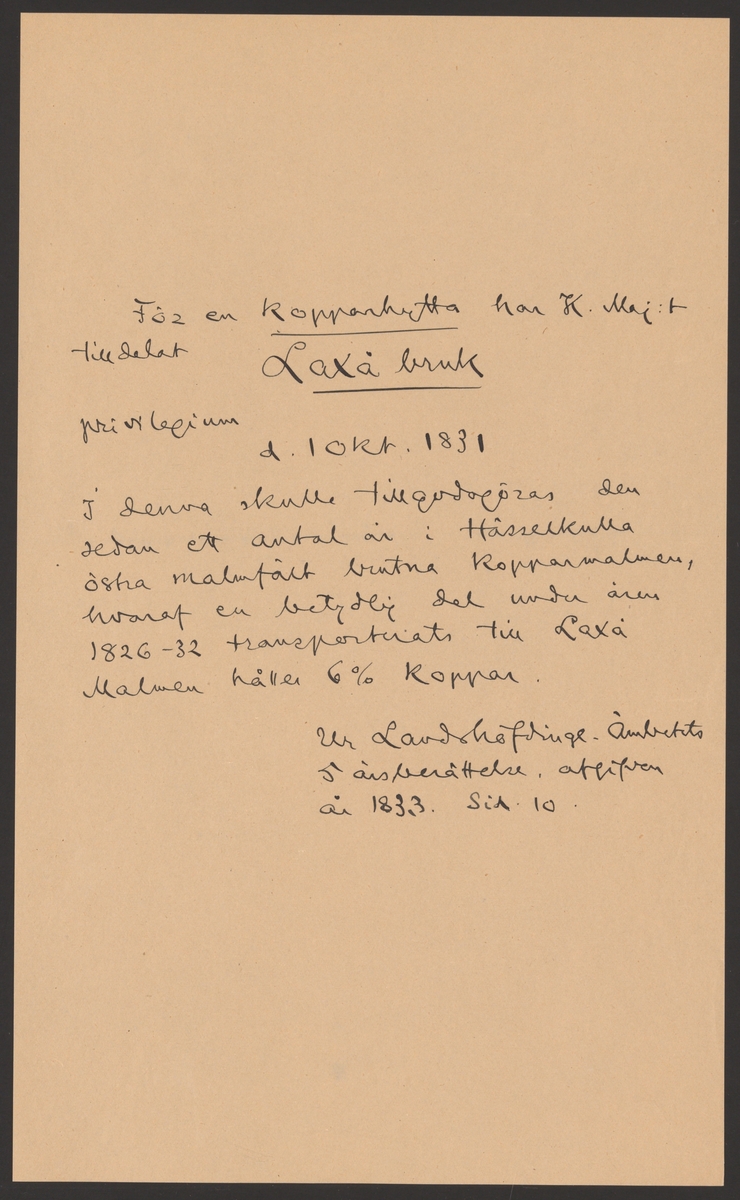 För en kopparhytta har K. Maj:t
tilldelat Laxå bruk
privilegium
d. 1 Okt. 1831
I denna skulle tillgodogöras den
sedan ett antal år i Hässelkulla
östra malmfält brutna kopparmalmen,
hvaraf en betydlig del under åren
1826-32 transporterats till Laxå
Malmen håller 6% koppar.
Ur Landshöfdinge-Ämbetets
5 årsberättelse, afgifven
år 1833. Sid. 10.